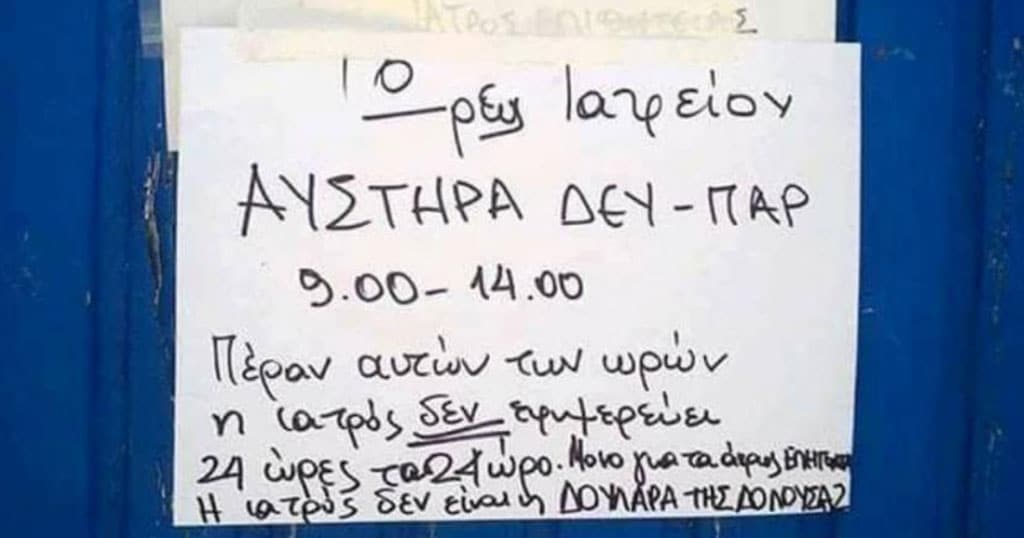 ΙΑΤΡΟΣ
Ώρες Ιατρείου
ΑΥΣΤΗΡΑ ΔΕΥ-ΠΑΡ
9.00-14.00
Πέραν αυτών των ωρών
η ιατρός δεν εφημερεύει
24 ώρες το 24ωρο. Μονο για τα άκρως ΕΠΕΙΓΟΝΤΑ
Η ιατρός δεν είναι η ΔΟΥΛΑΡΑ ΤΗΣ ΔΟΝΟΥΣΑΣ